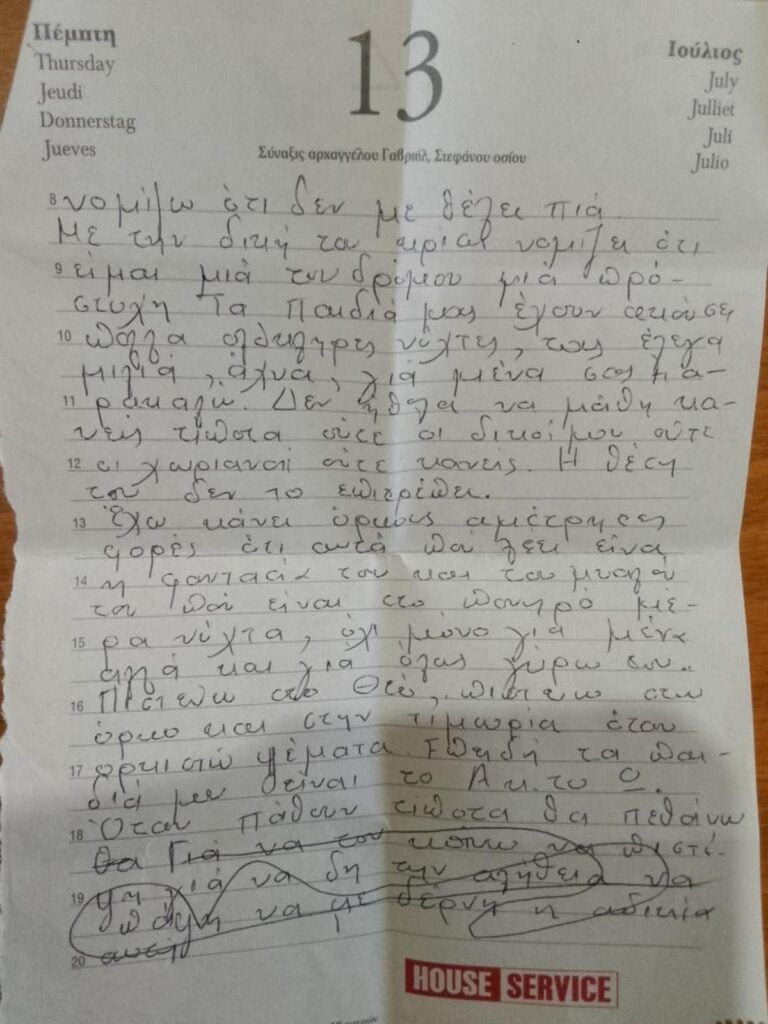 Πέμπτη
Thursday
Jeudi
Donnerstag
Jueves
13
Ιούλιος
July
Julliet
Juli
Julio
Σύναξις αρχαγγέλου Γαβριήλ, Στεφάνου οσίου
8 νομίζω ότι δεν με θέλει πιά.
Με την δική του κρίση νομίζει ότι
9 είμαι μιά του δρόμου μιά πρό-
στυχη Τα Παιδιά μας έχουν ακούσει
10 πολλά ολόκληρες νύχτες, τους έλεγα
μιλιά, άχνα, για μένα σας πα-
11 ρακαλώ. Δεν ήθελα να μάθη κα-
νείς τίποτα ούτε οι δικοί μου ούτε
12 οι χωριανοί ούτε κανείς. Η θέση
του δεν το επιτρέπει.
13 Έχω κάνει όρκους αμέτρητες
φορές ότι αυτά που λέει είναι
14 η φαντασία του και του μυαλού
του που είναι στο πονηρό μέ-
15 ρα νύχτα, όχι μόνο για μένα
αλλά και για όλους γύρω του..
16 Πιστεύω στο Θεό, πιστεύω στον
όρκο και στην τιμωρία όταν
17 ορκιστώ ψέματα. Επειδή τα παι-
διά μου είναι το Α κ. το Ω.
18 Όταν πάθουν τίποτα θα πεθάνω
θα Για να τον κάνω να πιστέ-
19 ψη για να δη την αλήθεια να
πάψη να με δέρνη η αδικία
20 αυτή
HOUSE SERVICE